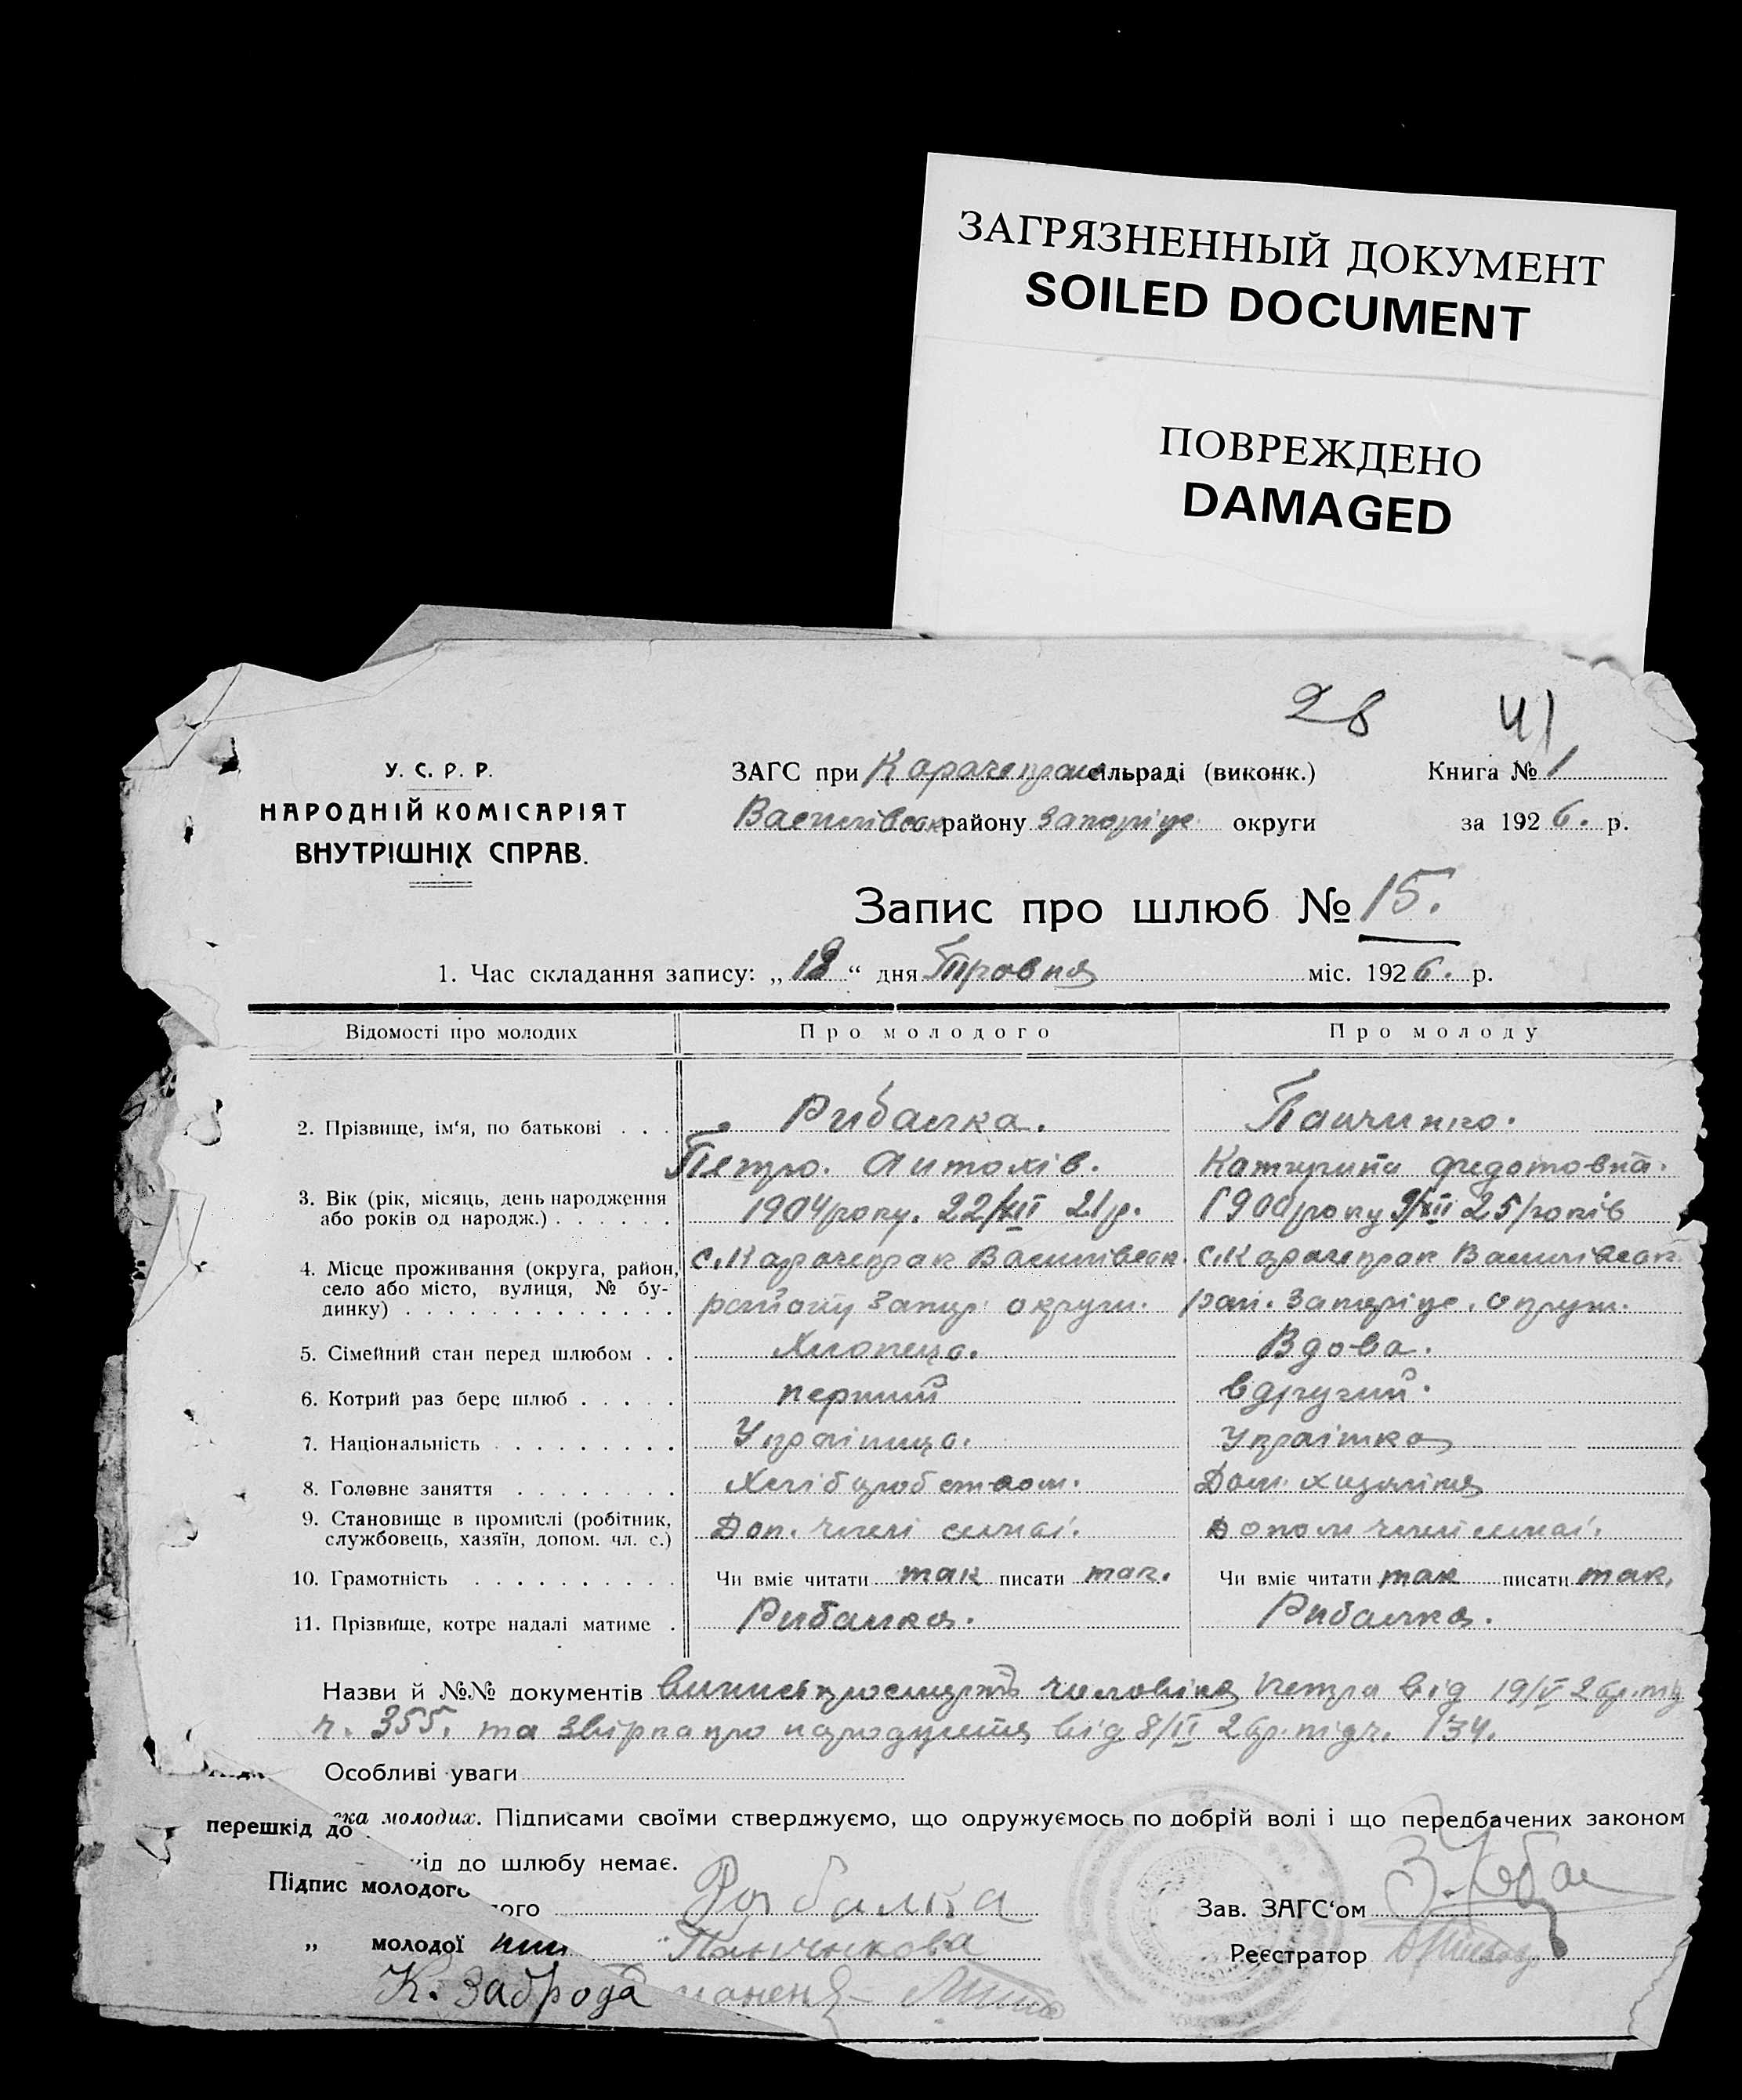 ЗАГРЯЗНЕННЫЙ ДОКУМЕНТ
SOILED DOCUMENT
ПОВРЕЖДЕНО
DAMAGED
28 41
У. С. Р. Р.
НАРОДНІЙ КОМІСАРІЯТ
ВНУТРІШНІХ СПРАВ.
ЗАГС при Карачекрак сільраді (виконк.) Книга № 1
Василівськ району Запоріж округи за 1926. р.
Запис про шлюб № 15.
1. Час складання запису: „18“ дня Травня міс. 1926. р.
Відомості про молодих Про молодого Про молоду
2. Прізвище, ім‘я, по батькові . . . Рибалка.
Петро. Катерина Федотовна.
3. Вік (рік, місяць, день народження або років од народж.) . . . . . . 1904 року. 22/XII 21 р. 1900 року 9/XII 25 років
4. Місце проживання (округа, район, село або місто, вулиця, № будинку) . . . . . . . . . . . . . с. Карачекрак Василівськ. с. Карачекрак Василівськ.
району Запор округи. рай. Запоріж. округи.
5. Сімейний стан перед шлюбом . . Хлопець. Вдова.
6. Котрий раз бере шлюб . . . . . перший вдругий.
7. Національність . . . . . . . . . Українець. Українка
8. Головне заняття . . . . . . . . Хліборобством. Дом. хазяйка
9. Становище в промислі (робітник, службовець, хазяїн, допом. чл. с.) Доп. член сімʼї. Допом член сімʼї.
10. Грамотність . . . . . . . . . . Чи вміє читати так писати так. Чи вміє читати так писати так.
11. Прізвище, котре надалі матиме . Рибалка. Рибалка.
Назви й №№ документів випись про смерть чоловіка Петра від 19/V 26 р.
ч. 355. та про народження від 8/II 26 р. під ч. 134.
Особливі уваги
ка молодих. Підписами своїми стверджуємо, що одружуємось по добрій волі і що передбачених законом
перешкід до
до шлюбу немає.
Підпис молодого
ого Рыбалка Зав. ЗАГС‘ом
„ молодої Реєстратор
К. Заброда